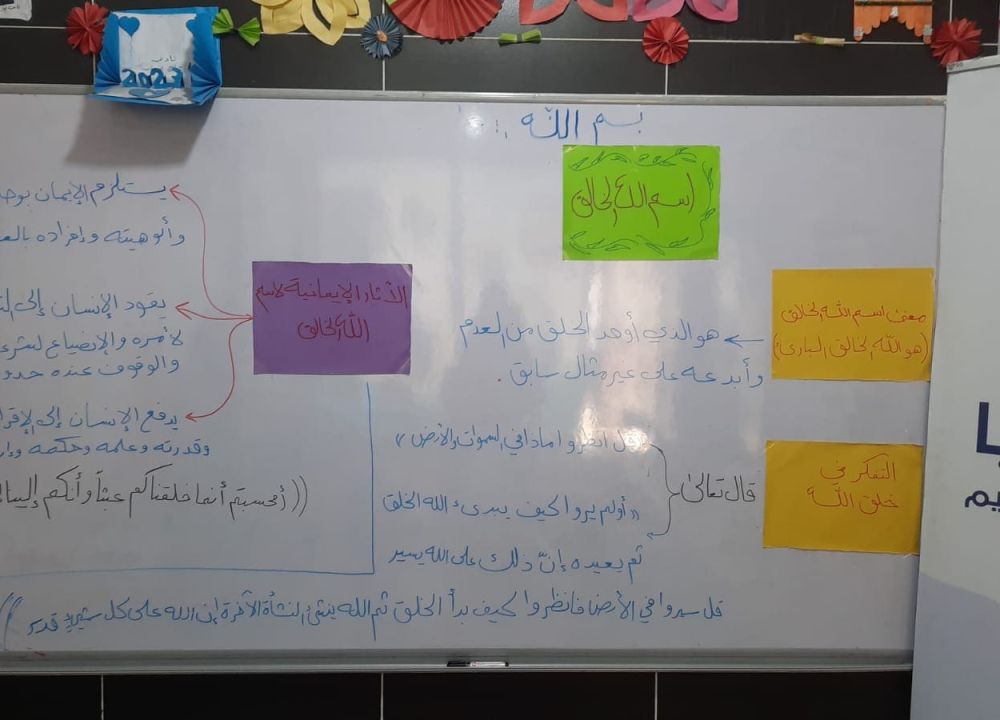 نادي
2023
بسم الله
اسم الله الخالق
معنى اسم الله الخالق
(هو الله الخالق البارئ)
هو الذي أوجد الخلق من العدم
وأبدعه على غير مثال سابق.
التفكر في
خلق الله
قال تعالى
قل انظروا ماذا في السموات والأرض "
" أولم يروا كيف يبدىء الله الخلق
ثم يعيده إنّ ذلك على الله يسير
قل سيروا في الأرض فانظروا كيف بدأ الخلق ثم الله ينشئ النشأة الآخرة إن الله على كل شيء قدير ))
الآثار الإيمانية لاسم
الله الخالق
يستلزم الإيمان
وألوهيته وإفراده
يقود الإنسان إلى
لأمره والإنصياع
والوقوف عنده
يدفع الإنسان إلى
وقدرته وعلمه وحكمته
(( أفحسبتم أنما خلقناكم عبثاً وأنكم إلينا
يم